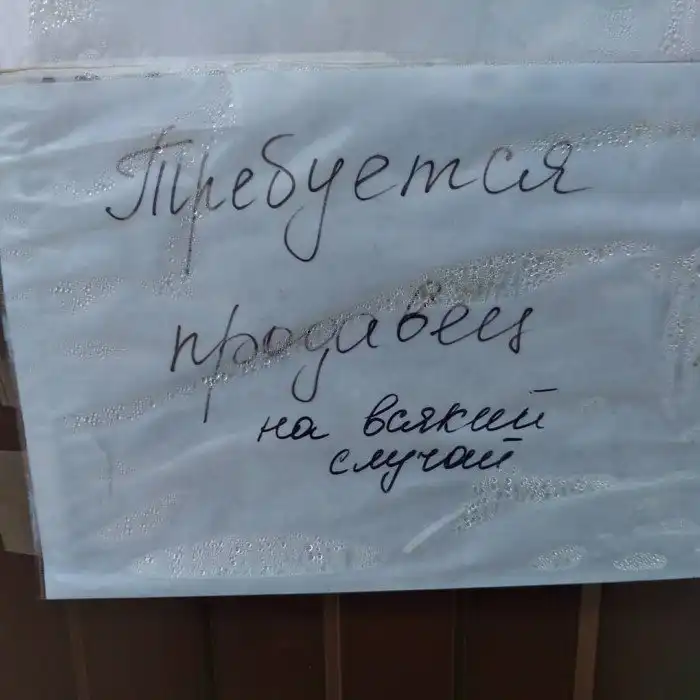 Требуется
продавец
на всякий
случай